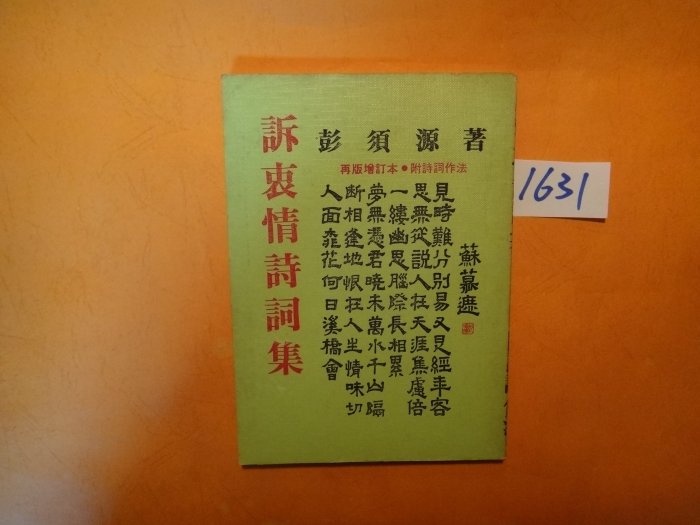 訴衷情詩詞集
彭須源著
再版增訂本●附詩詞作法
蘇慕遮
見時難分別易又見經年客
思無從説人在天涯焦慮倍
一縷幽思腦際長相累
夢無憑君曉未萬水千山隔
断相逢地恨在人生情味切
人面桃花何日溪橋會
1631